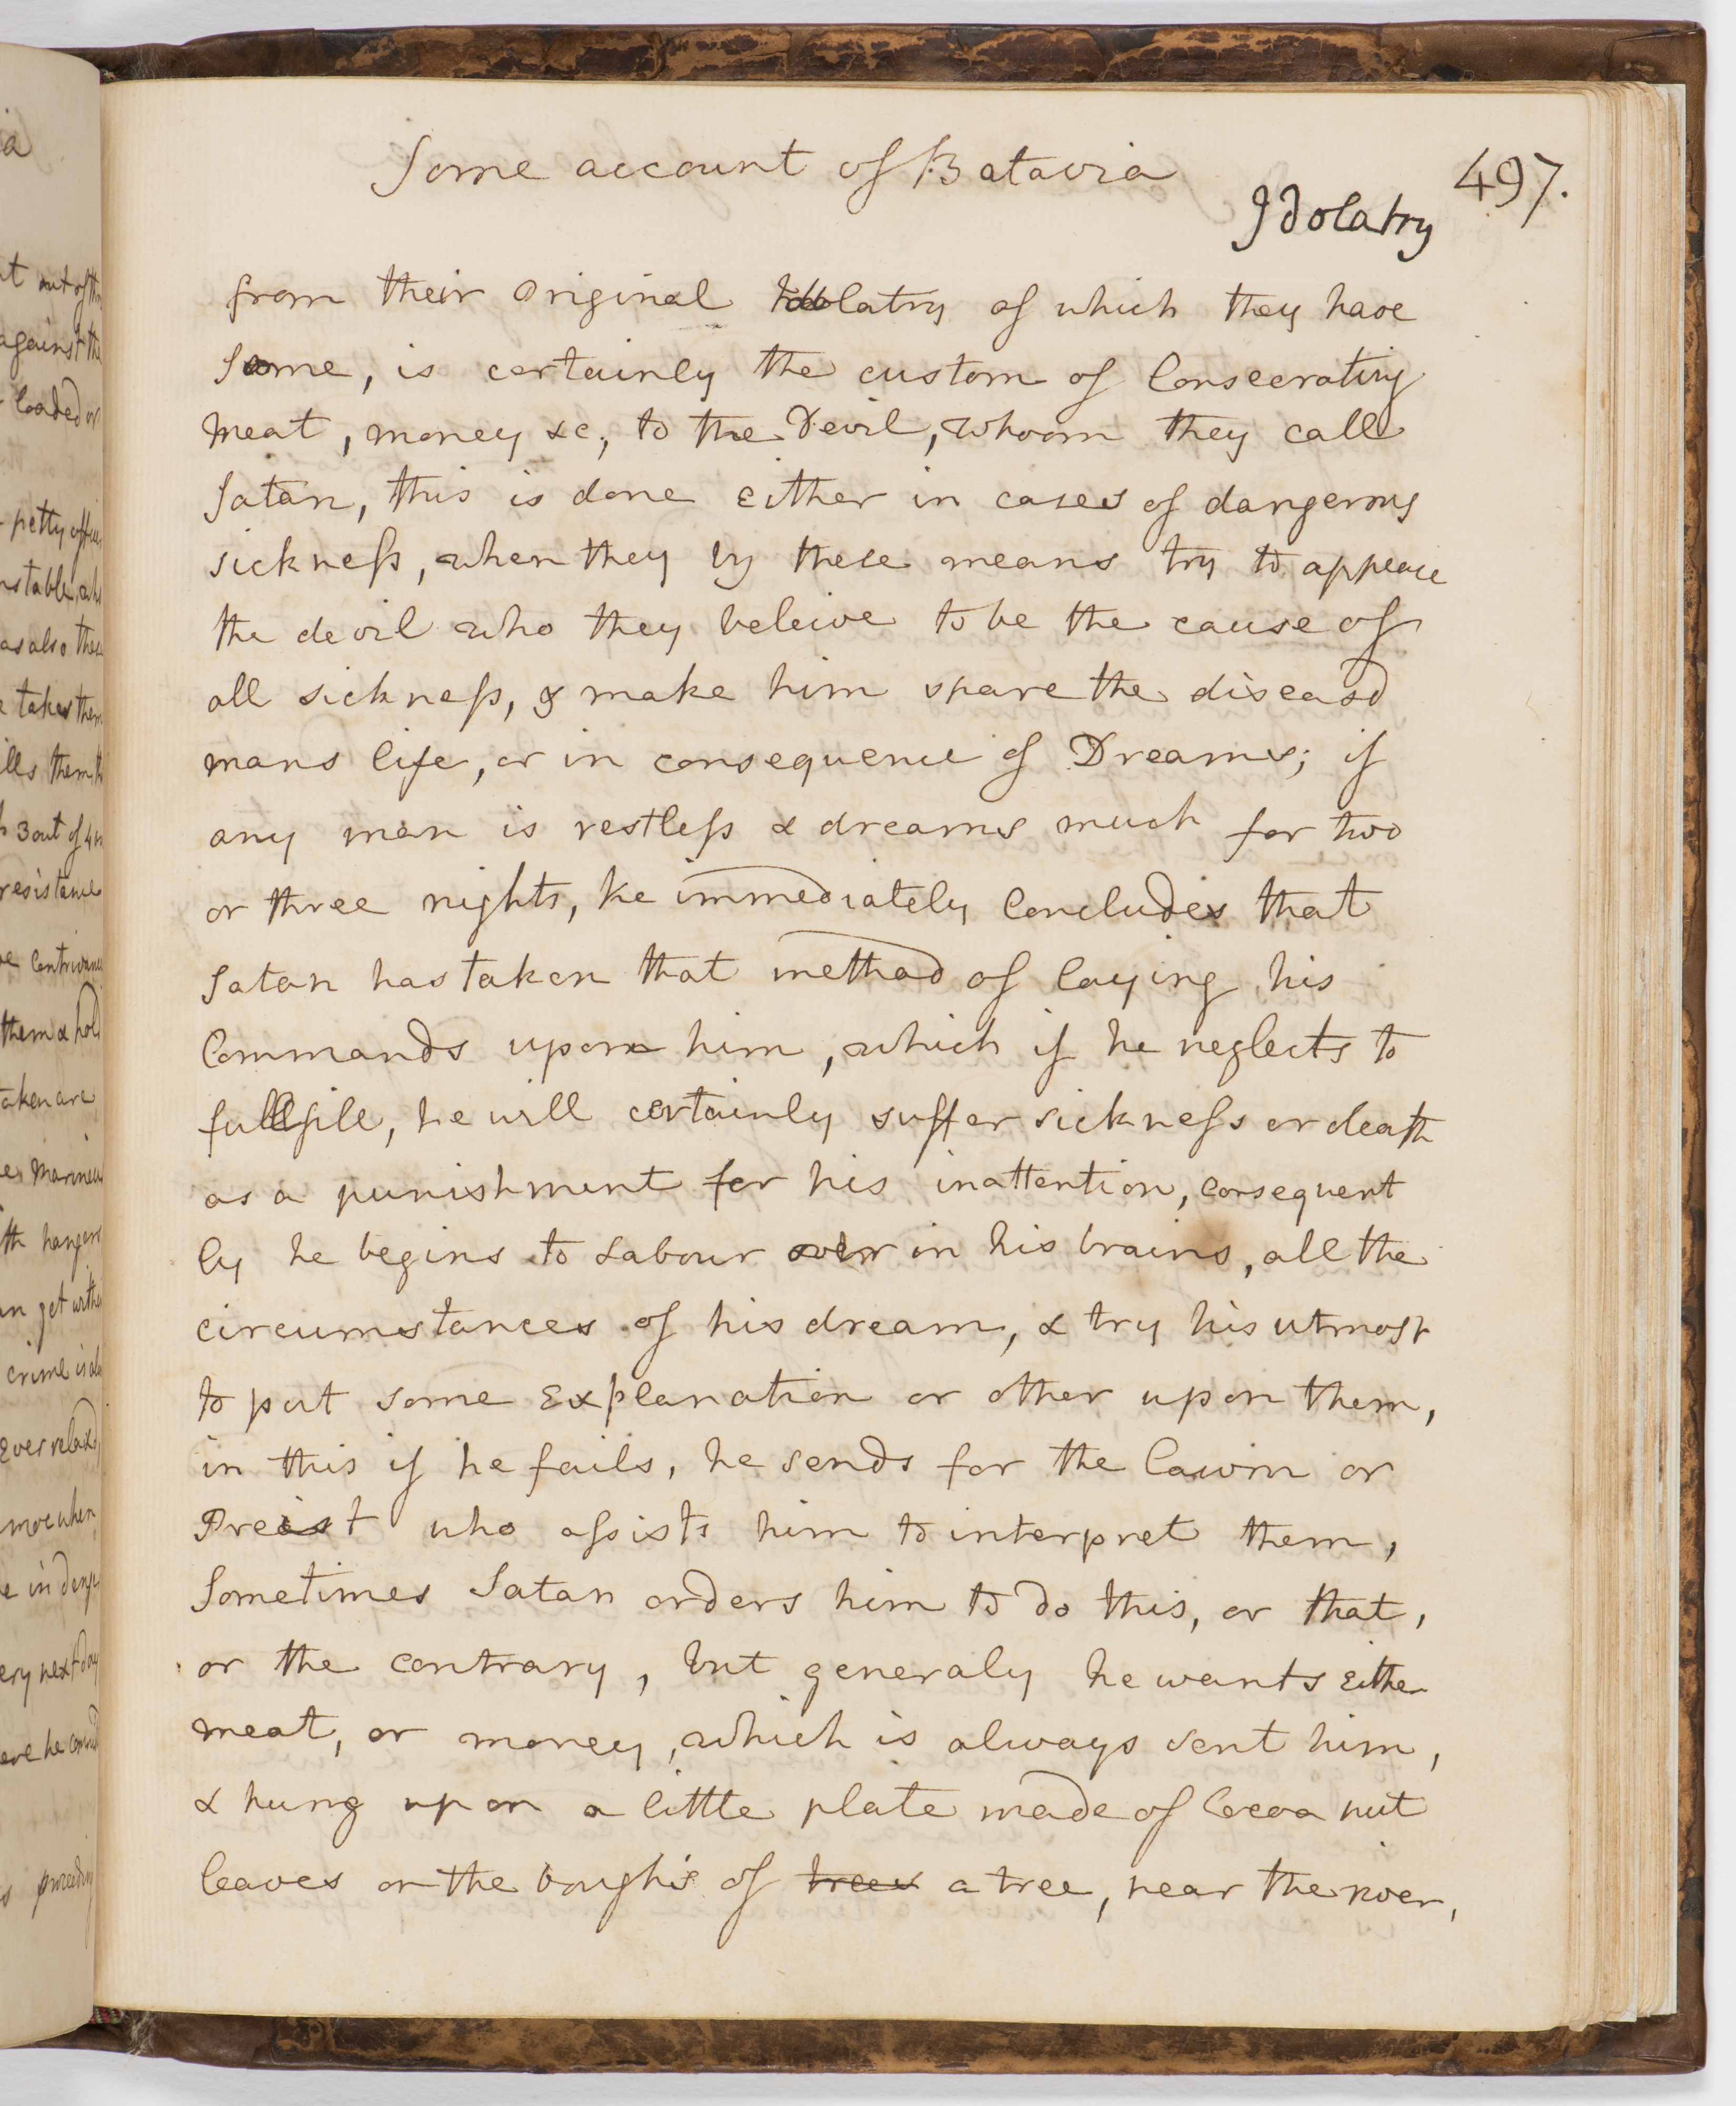 Some account of Batavia
497.
Idolatry
from their original Idolatry of which they have
Some, is certainly the custom of Consecrating
meat, money &c, to the Devil, whoom they call
Satan, this is done Either in cases of dangerous
sickness, when they by these means try to appease
the devil who they beleive to be the cause of
all sickness, & make him spare the diseasd
mans life, or in consequence of Dreams; if
any man is restless & dreams much for two
or three nights, he immediately Concludes that
Satan has taken that method of laying his
Commands upon him, which if he neglects to
fullfill, he will certainly suffer sickness or death
as a punishment for his inattention, consequent
ly he begins to Labour over in his brains, all the
circumstances of his dream, & try his utmost
to put some Explanation or other upon them,
in this if he fails, he sends for the Cawin or
Preist who assists him to interpret them,
Sometimes Satan orders him to do this, or that,
or the contrary, but generaly he wants Either
meat, or money, which is always sent him,
& hung up on a little plate made of Cocoa nut
leaves on the boughs of trees a tree, near the river,
ia
out of
against the
loaded or
petty
as also these
takes them
ills them
3 out of 4
resistance
them & hold
taken are
hangers
crime is
Ever
when
ery next day